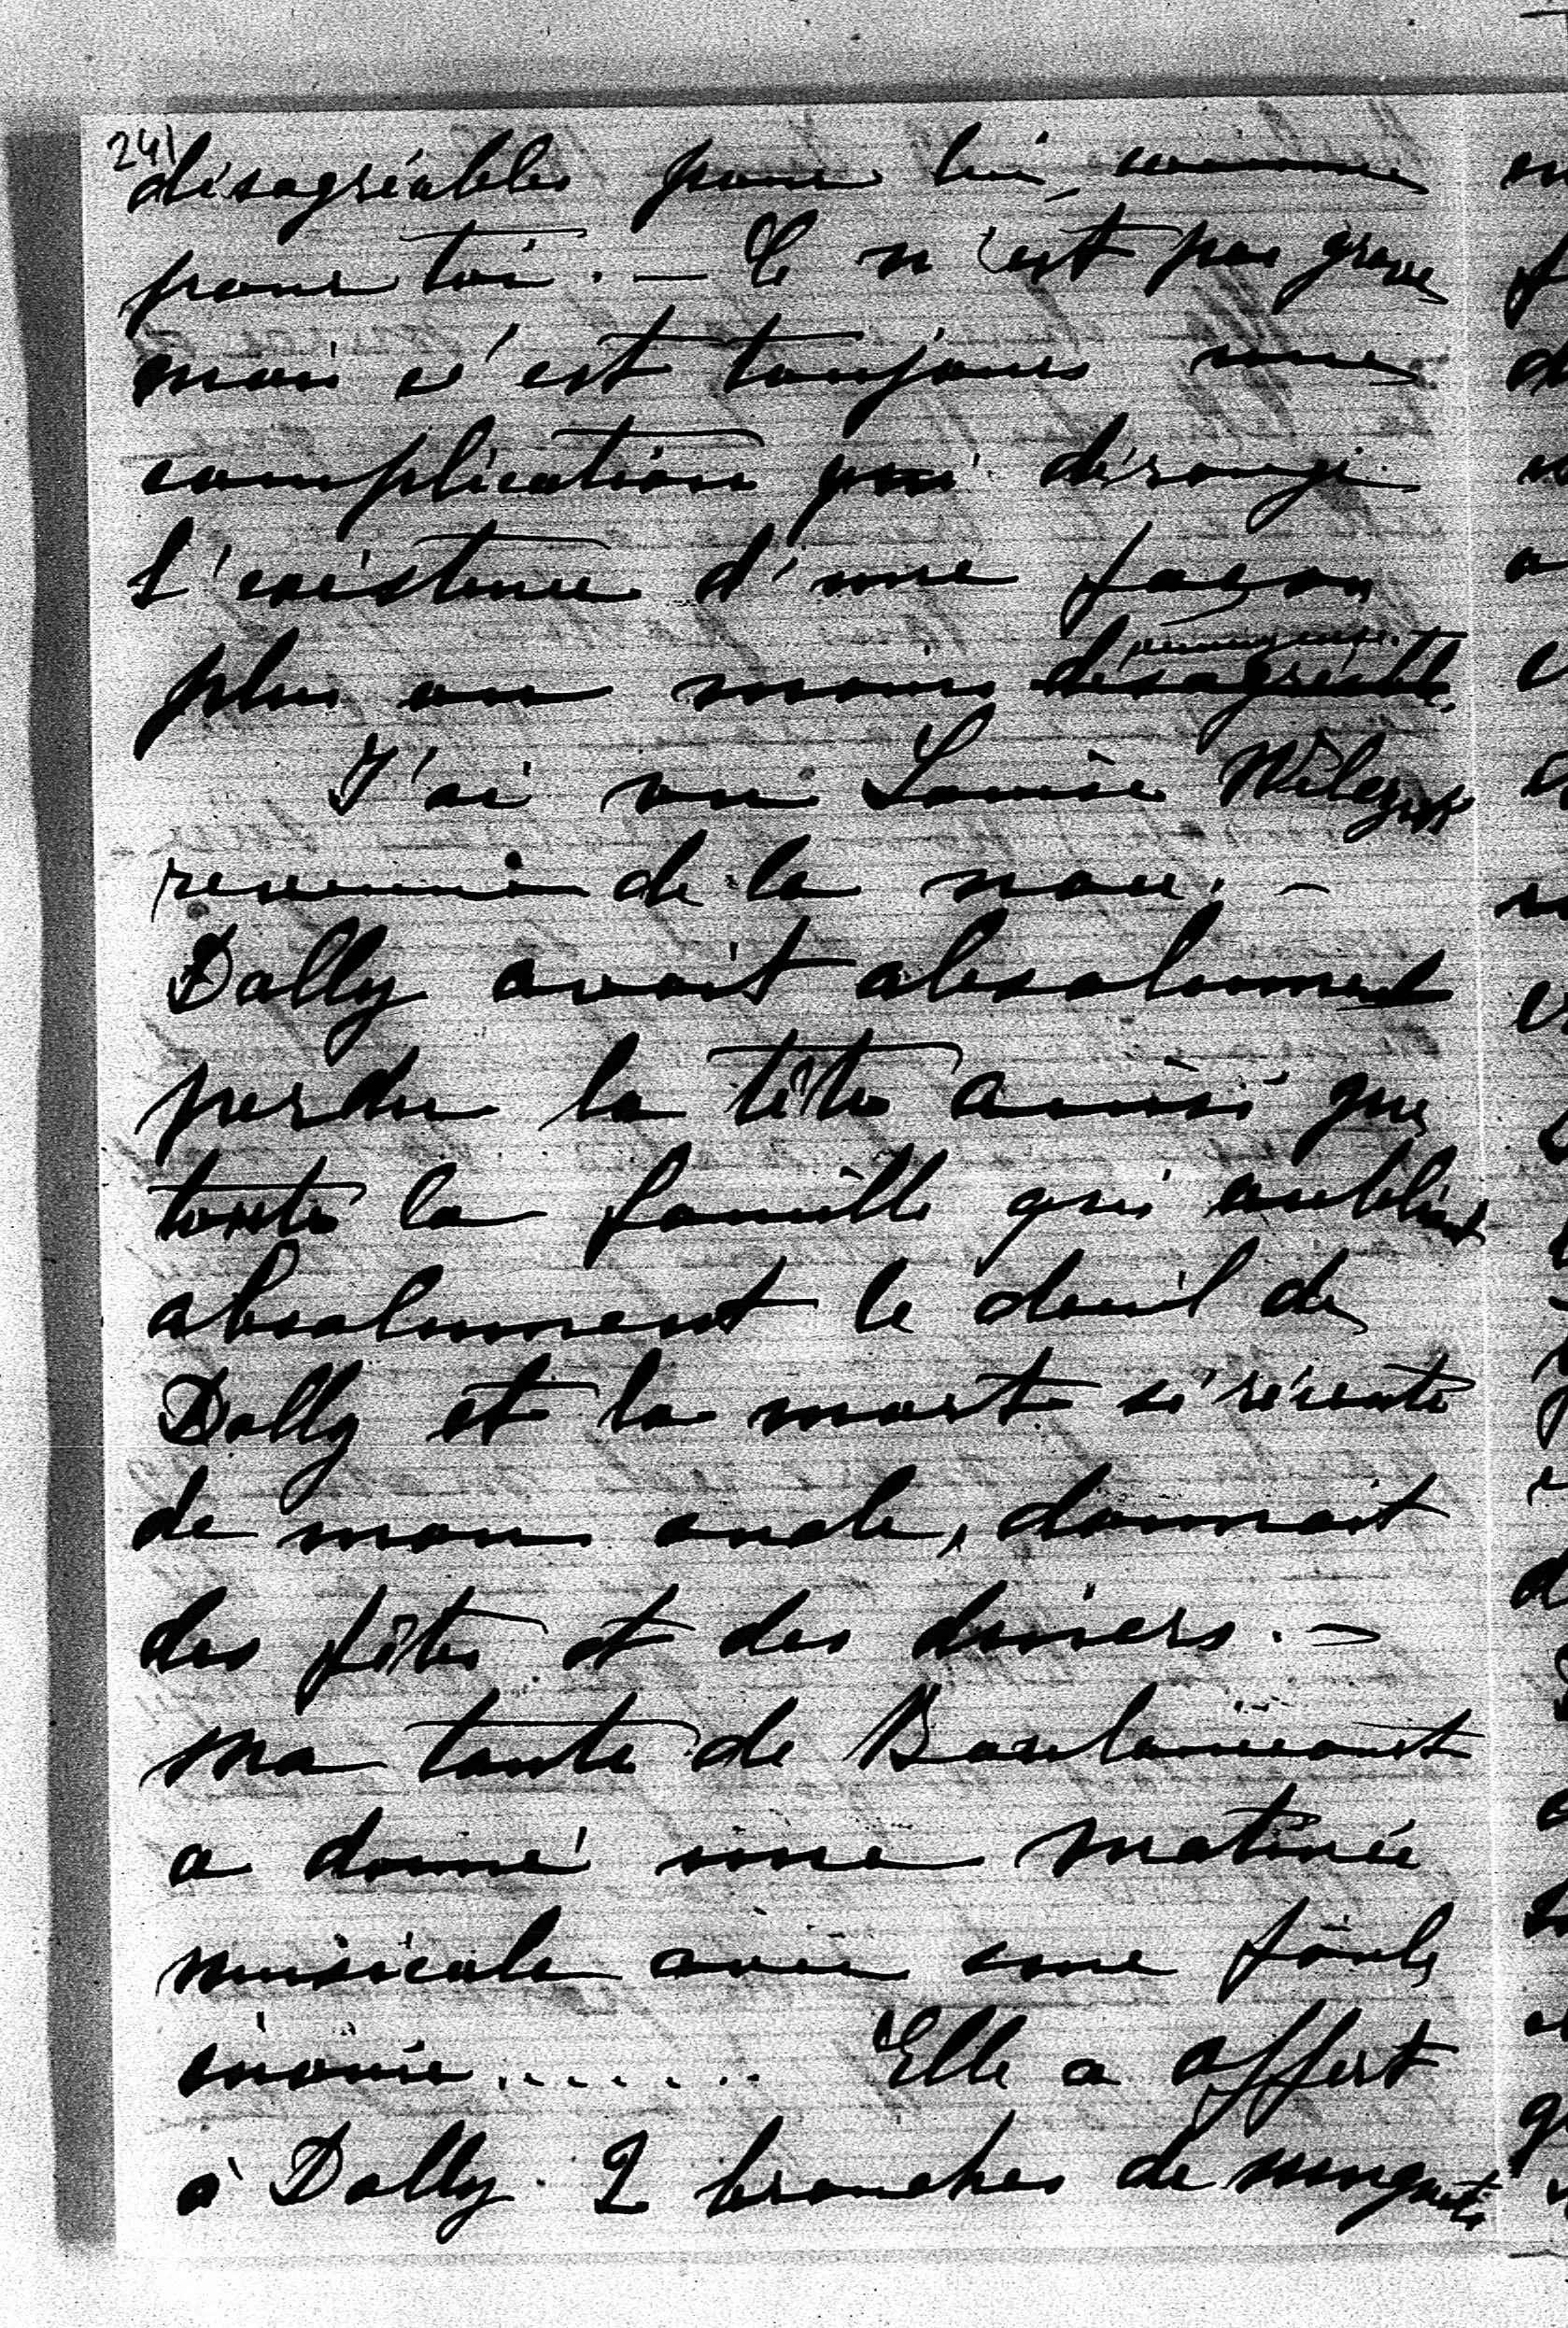 241
désagréables pour lui, comme
pour toi. — Ce n'est pas grave
mais c'est toujours une
complication qui dérange
l'existence d'une façon
plus ou moins désagréable.
J'ai vu Louise
revenue de la noce. —
Dolly avait absolument
perdu la tête ainsi que
toute la famille qui oubliant
absolument le deuil de
Dolly et la mort si récente
de mon oncle, donnait
des fêtes et des diners. —
ma tante de Baulaincourt
a donné une matinée
musicale avec une foule
inouie ....... Elle a offert
à Dolly 2 branches de muguets